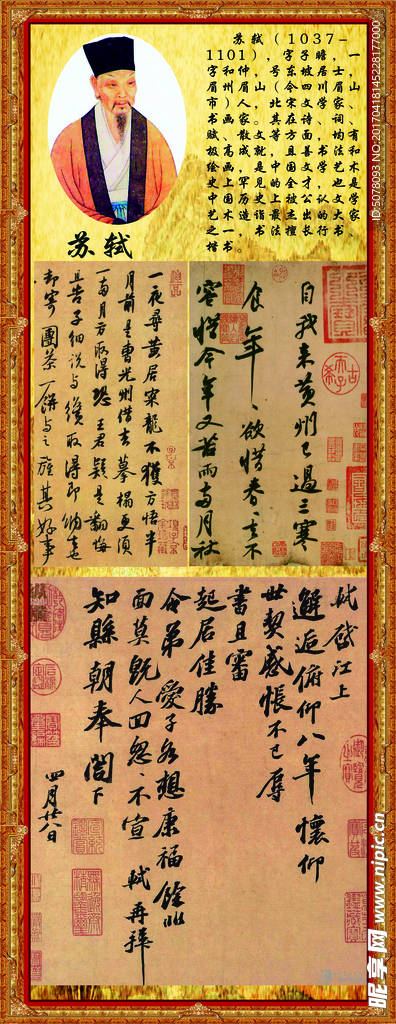 苏轼（1037-
1101），字子瞻，一
字和仲，号东坡居士，
眉州眉山（今四川眉山
市）人，北宋文学家、
书画家。其在诗、词、
赋、散文等方面均有
极高成就，且善书法和
绘画，是中国文学艺术
史上罕见的全才，也是
中国历史上被公认文学
艺术造诣最杰出的大家
之一。书法擅长行书、
楷书。
苏轼
自我来黄州已過三寒
食年、欲惜春、去不
容惜今年又苦雨兩月秋
一夜尋黃居寀龍不獲方悟半
月前是曹光州借去摹搨更須
一兩月方取得恐王君疑是翻悔
且告子細說與纔取得即納去也
却寄團茶一餅與之旌其好事
軾啓江上
邂逅俯仰八年懷仰
世契感悵不已辱
書且審
起居佳勝
令弟愛子各想康福餘非
面莫既人回怱、不宣軾再拜
知縣朝奉閣下
四月廿八日
ID:5078093 NO:20170418145228177000
昵享网 www.nipic.cn